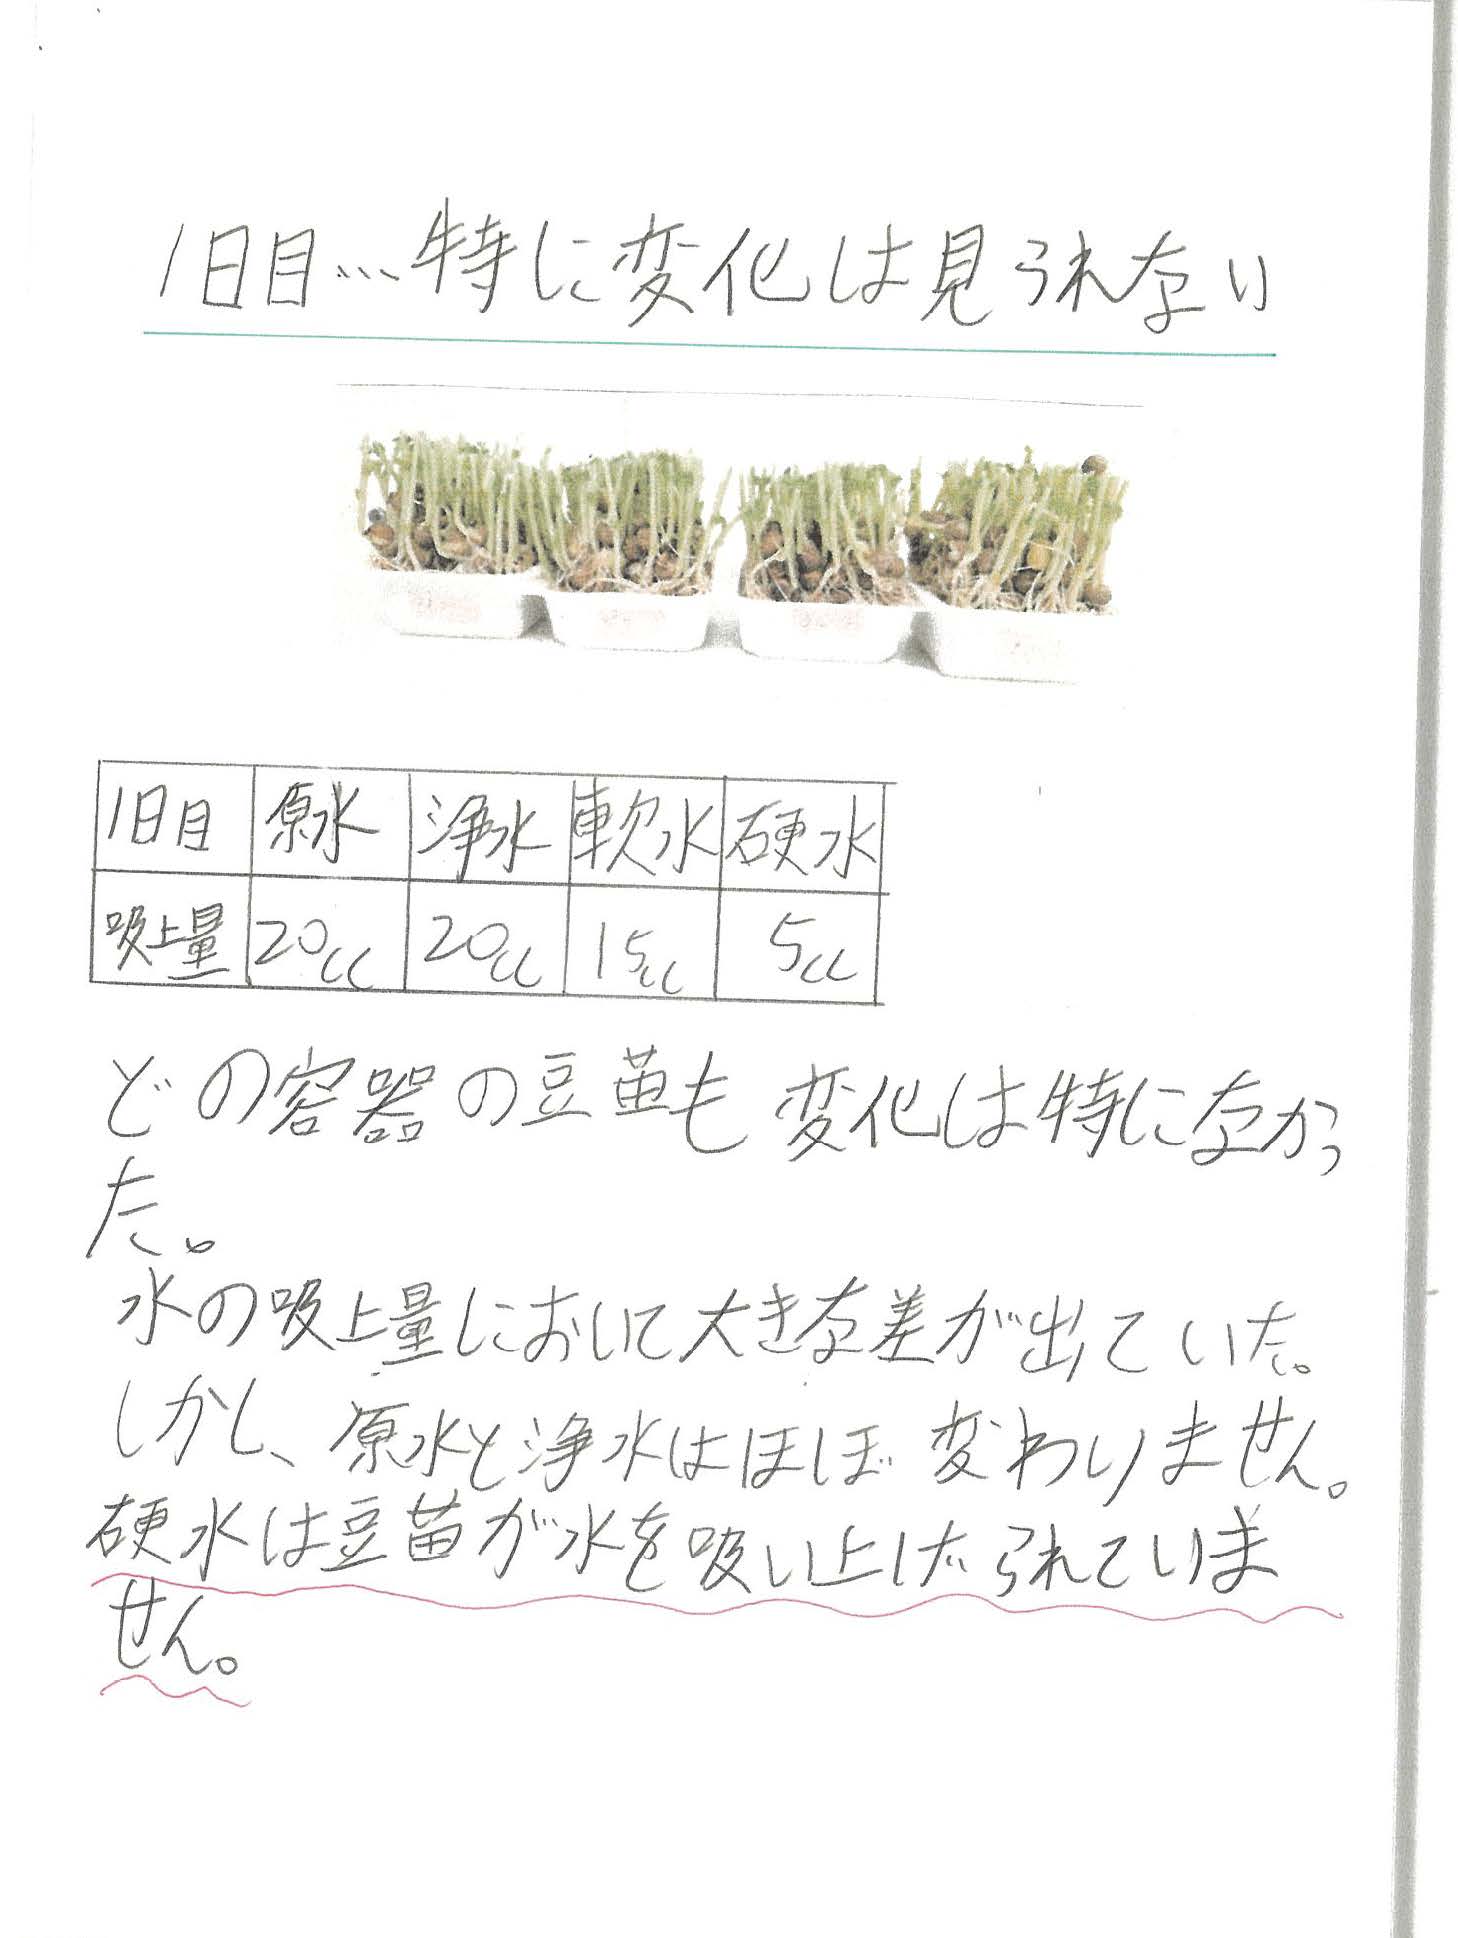 1日目…特に変化は見られない
1日目 原水 浄水 軟水 硬水
吸上量 20cc 20cc 15cc 5cc
どの容器の豆苗も変化は特になかっ
た。
水の吸上量において大きな差が出ていた。
しかし、原水と浄水はほぼ変わりません。
硬水は豆苗が水を吸い上げられていま
せん。